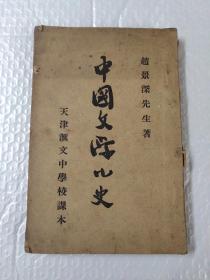 趙景深先生著
中國文學小史
天津滙文中學校課本